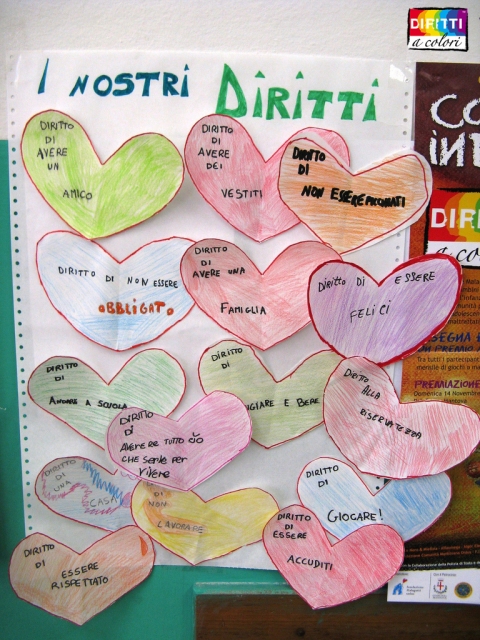 DIRITTI
a colori
I NOSTRI DIRITTI
DIRITTO
DI
AVERE
UN
AMICO
DIRITTO
DI
AVERE
DEI
VESTITI
DIRITTO
DI
NON ESSERE
DIRITTO DI NON ESSERE
OBBLIGATO
DIRITTO
DI
AVERE UNA
FAMIGLIA
DIRITTO DI ESSERE
FELICI
DIRITTO
DI
ANDARE A SCUOLA
DIRITTO
DI
GIARE E BERE
DIRITTO
ALLA
RISERVATEZZA
DIRITTO
DI
AVERE TUTTO CIÒ
CHE SERVE PER
VIVERE
DIRITTO
DI
UNA
CASA
DI
NON
LAVORARE
DI
GIOCARE!
DIRITTO
DI
ESSERE
RISPETTATO
DIRITTO
DI ESSERE
ACCUDITI
CO
DIRI
a co
PREMIAZIONE
Domenica 14 novembre